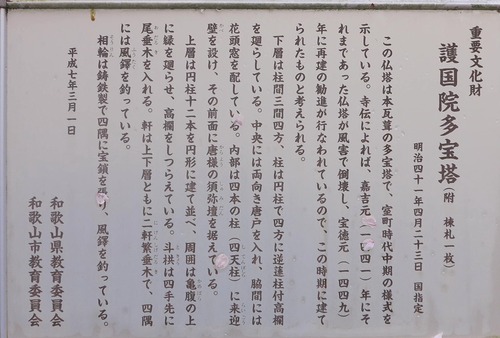 重要文化財
護国院多宝塔(附 棟札一枚)
明治四十一年四月二十三日 国指定
この仏塔は本瓦葺の多宝塔で、室町時代中期の様式を
示している。寺伝によれば、嘉吉元(一四四一)年にそ
れまであった仏塔が風害で倒壊し、宝徳元(一四四九)
年に再建の勧進が行なわれているので、この時期に建て
られたものと考えられる。
下層は柱間三間四方、柱は円柱で四方に逆蓮柱付高欄
を廻らしている。中央には両向き唐戸を入れ、脇間には
花頭窓を配している。内部は四本の柱(四天柱)に来迎
壁を設け、その前面に唐様の須弥壇を据えている。
上層は円柱十二本を円形に建て並べ、周囲は亀腹の上
に縁を廻らせ、高欄をしつらえている。斗栱は四手先に
尾垂木を入れる。軒は上下層ともに二軒繁垂木で、四隅
には風鐸を釣っている。
相輪は鋳鉄製で四隅に宝鎖を張り、風鐸を釣っている。
平成七年三月一日
和歌山県教育委員会
和歌山市教育委員会